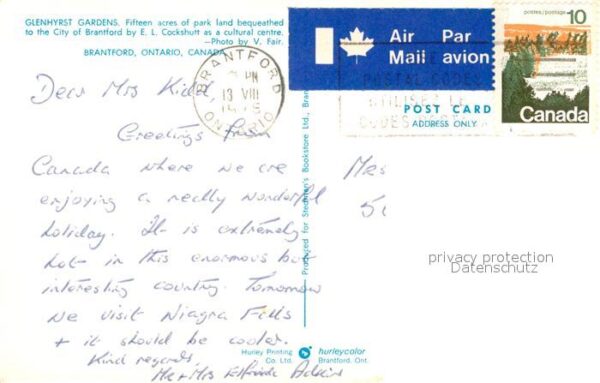 GLENHYRST GARDENS. Fifteen acres of park land bequeathed
to the City of Brantford by E. L. Cockshutt as a cultural centre.
—Photo by V. Fair.
BRANTFORD, ONTARIO, CANADA
Air Par
Mail avion
postes/postage 10
Canada
BRANTFORD
PM
13 VIII
ONTARIO
POSTAL CODES
UTILISEZ LE
POST CARD
ADDRESS ONLY
Dear Mrs
Greetings from
Canada where we are
enjoying a really wonderful
holiday. It is extremely
hot in this enormous but
interesting country. Tomorrow
we visit Niagra Falls
+ it should be cooler.
Kind regards,
Mr + Mrs
Mrs
Produced for Stedman's Bookstore Ltd.,
privacy protection
Datenschutz
Hurley Printing
Co. Ltd.
hurleycolor
Brantford, Ont.